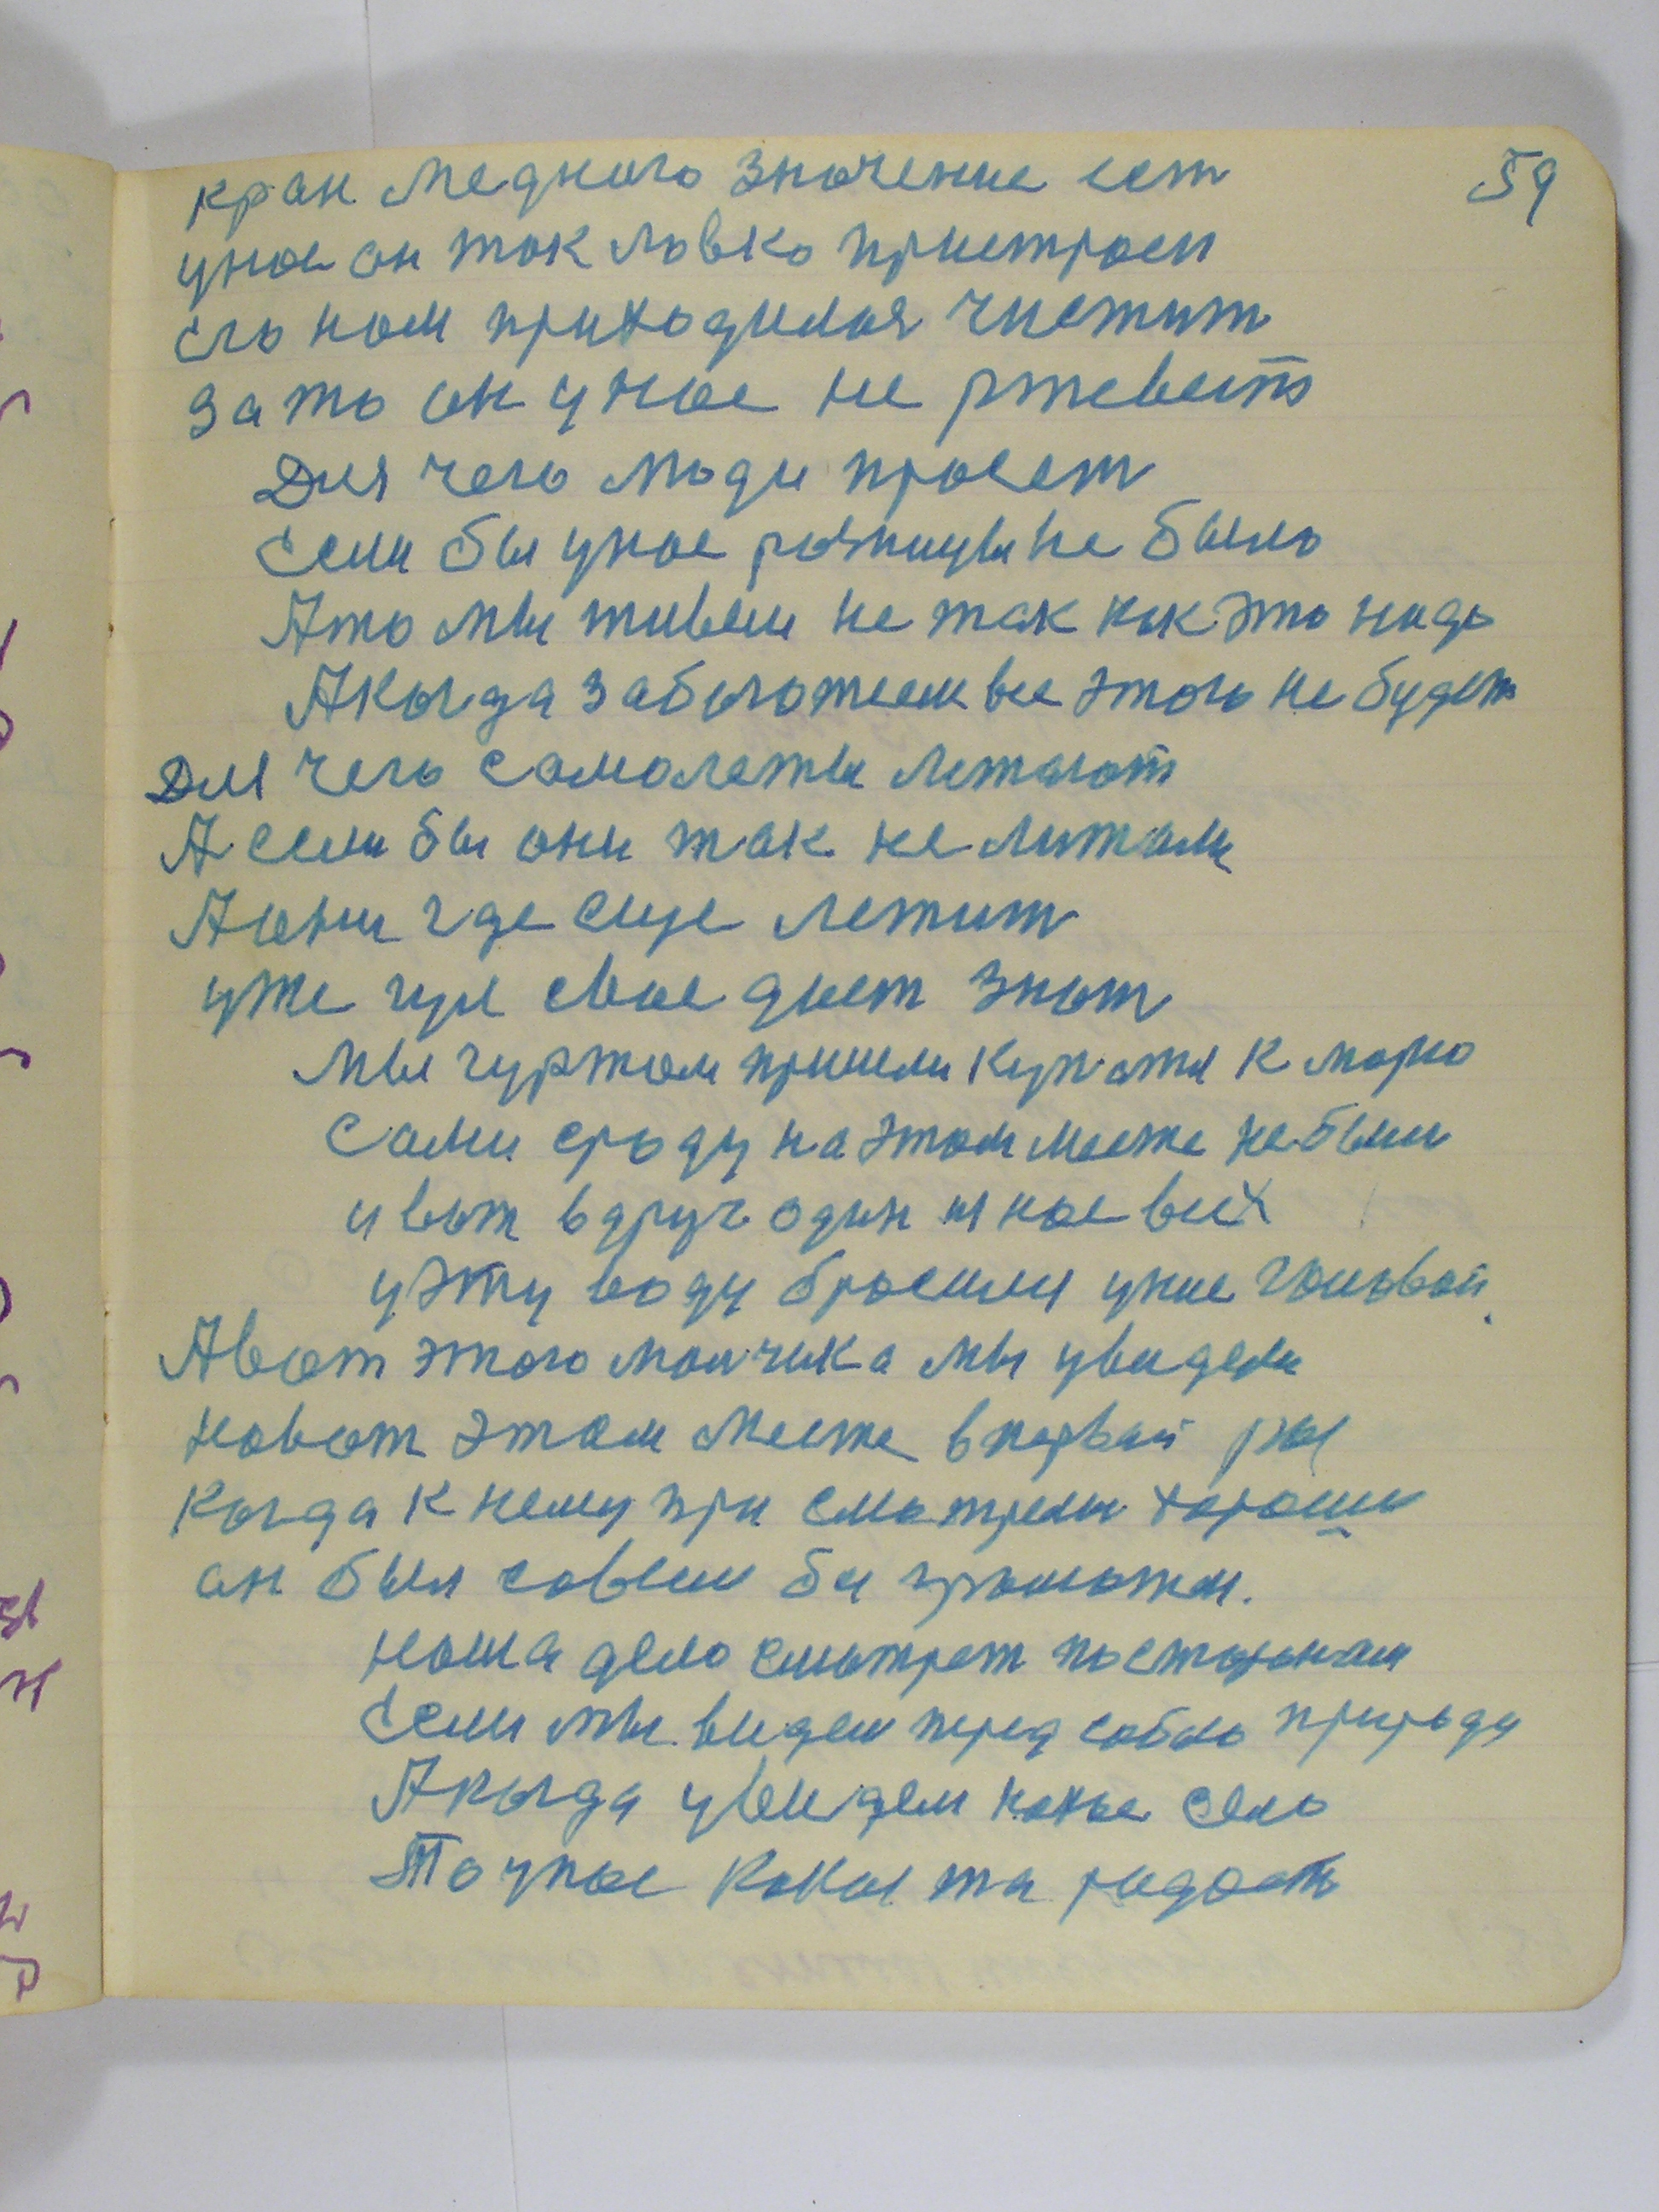 59
кран медного значение ест
унас он так ловко пристроен
его нам приходилася чистит
зато он унас не ржевеит
Для чего люди просет
если бы унас разницы не было
Ато мы живем не так как это надо
Акогда заболожеем все этого не будет
Для чего самолеты летают
А если бы они так не литали
Аони где еще летит
уже гул свое дает знат
мы гуртом пришли купатся к морю
сами сроду на этом месте небыли
ивот вдруг один из нас всех
уэту воду бросился уние головой
Авот этого малчика мы увидели
навот этом месте впервай раз
Когда к нему при смотрели хорошо
он был совсем би грамотен.
наша дело смотрет посторонам
Если мы видем перед собою природу
Акогда увеидем какое село
То унас какая та радость